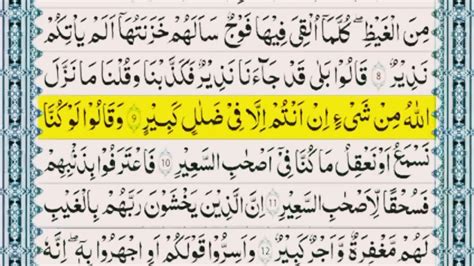 مِنَ الْغَيْظِ ؕ كُلَّمَاۤ اُلْقِيَ فِيْهَا فَوْجٌ سَاَلَهُمْ خَزَنَتُهَاۤ اَلَمْ يَاْتِكُمْ
نَذِيْرٌ ۸ قَالُوْا بَلٰى قَدْ جَآءَنَا نَذِيْرٌ ۙ فَكَذَّبْنَا وَقُلْنَا مَا نَزَّلَ
اللّٰهُ مِنْ شَيْءٍ ۖ اِنْ اَنْتُمْ اِلَّا فِيْ ضَلٰلٍ كَبِيْرٍ ۹ وَقَالُوْا لَوْ كُنَّا
نَسْمَعُ اَوْ نَعْقِلُ مَا كُنَّا فِيْۤ اَصْحٰبِ السَّعِيْرِ ۱۰ فَاعْتَرَفُوْا بِذَنْۢبِهِمْ ۚ
فَسُحْقًا لِّاَصْحٰبِ السَّعِيْرِ ۱۱ اِنَّ الَّذِيْنَ يَخْشَوْنَ رَبَّهُمْ بِالْغَيْبِ
لَهُمْ مَّغْفِرَةٌ وَّاَجْرٌ كَبِيْرٌ ۱۲ وَاَسِرُّوْا قَوْلَكُمْ اَوِ اجْهَرُوْا بِهٖ ؕ اِنَّهٗ